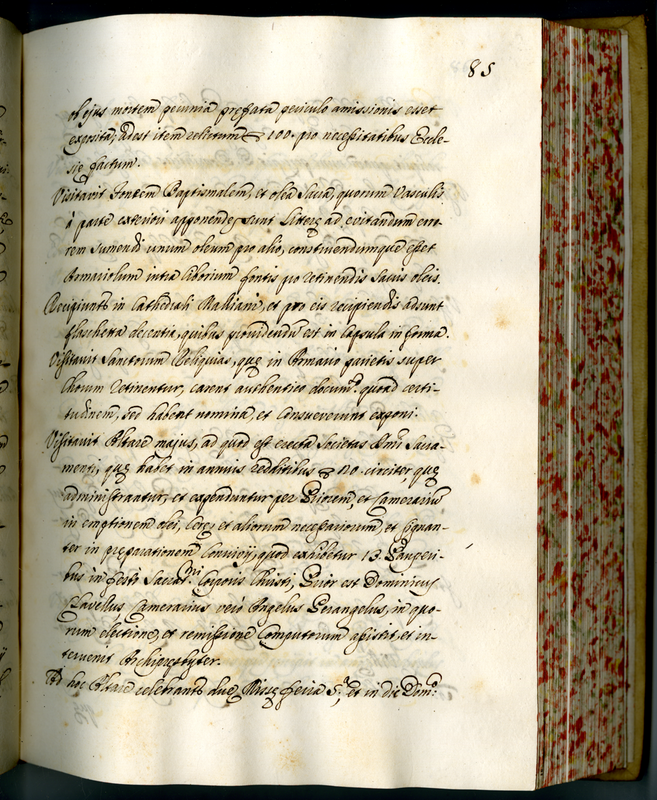 85
ob ejus mortem pecunia præfata periculo amissionis esset
exposita; adest item relictum 100. pro necessitatibus Eccle-
siæ factum.
Visitavit Fontem Baptismalem, et olea Sacra, quorum Vasculis
à parte exteriori apponendæ sunt Litteræ ad evitandum erro-
rem sumendi unum oleum pro alio, construendumque esset
Armariolum intra Ciborium fontis pro retinendis Sacris oleis.
Recipiunt in Cathedrali, et pro eis recipiendis adsunt
flaschetta decentia, quibus providendũ est in capsula in forma.
Visitavit Sanctorum Reliquias, quæ in Armario parietis super
Chorum retinentur, carent authentico docum.º quoad certi-
tudinem, sed habent nomina, et consueverunt exponi.
Visitavit Altare majus, ad quod est erecta Societas Ssm̃i Sacra-
menti, quæ habet in annuis redditibus circiter, quæ
administrantur, et expenduntur per Priorem, et Camerariũ
in emptionem olei, Ceræ et aliorum necessariorum, et signan-
ter in præparationem Convivij, quod exhibetur 13. Pauperi-
bus in festo Sacrat.mi Corporis Christi, Prior est Dominicus
Flavellus Camerarius verò Angelus Perangelus, in quo-
rum electione, et remissione Computorum assistit, et in-
tervenit Archipresbyter.
Ad hoc Altare celebrantur duæ Missæ feria 5.ª, et in die Dom.ª